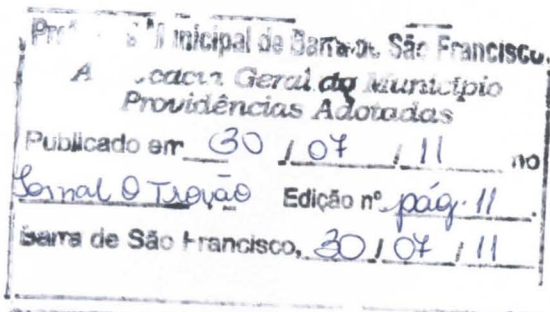 Municipal de Barra de São Francisco.
Geral do Município
Providências Adotadas
Publicado em 30 / 07 / 11 no
Jornal O Trovão Edição nº pág. 11.
Barra de São Francisco, 30 / 07 / 11